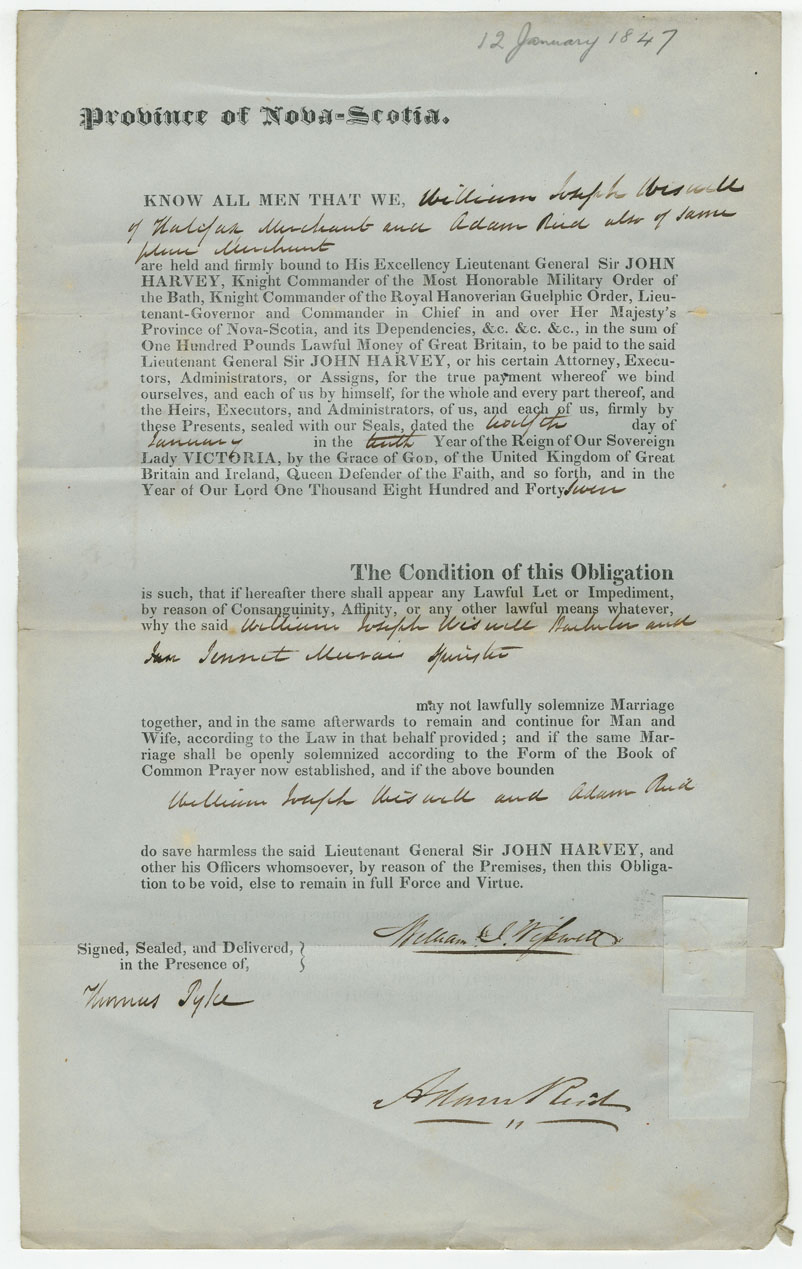 12 January 1847
Province of Nova-Scotia.
KNOW ALL MEN THAT WE, William Joseph Wiswell
of Halifax Merchant and Adam Reid also of same
place Merchant
are held and firmly bound to His Excellency Lieutenant General Sir JOHN
HARVEY, Knight Commander of the Most Honorable Military Order of
the Bath, Knight Commander of the Royal Hanoverian Guelphic Order, Lieu-
tenant-Governor and Commander in Chief in and over Her Majesty's
Province of Nova-Scotia, and its Dependencies, &c. &c. &c., in the sum of
One Hundred Pounds Lawful Money of Great Britain, to be paid to the said
Lieutenant General Sir JOHN HARVEY, or his certain Attorney, Execu-
tors, Administrators, or Assigns, for the true payment whereof we bind
ourselves, and each of us by himself, for the whole and every part thereof, and
the Heirs, Executors, and Administrators, of us, and each of us, firmly by
these Presents, sealed with our Seals, dated the twelfth day of
January in the tenth Year of the Reign of Our Sovereign
Lady VICTORIA, by the Grace of GOD, of the United Kingdom of Great
Britain and Ireland, Queen Defender of the Faith, and so forth, and in the
Year of Our Lord One Thousand Eight Hundred and Forty seven
The Condition of this Obligation
is such, that if hereafter there shall appear any Lawful Let or Impediment,
by reason of Consanguinity, Affinity, or any other lawful means whatever,
why the said William Joseph Wiswell Bachelor and
Jennet Spinster
may not lawfully solemnize Marriage
together, and in the same afterwards to remain and continue for Man and
Wife, according to the Law in that behalf provided; and if the same Mar-
riage shall be openly solemnized according to the Form of the Book of
Common Prayer now established, and if the above bounden
William Joseph Wiswell and Adam Reid
do save harmless the said Lieutenant General Sir JOHN HARVEY, and
other his Officers whomsoever, by reason of the Premises, then this Obliga-
tion to be void, else to remain in full Force and Virtue.
William J. Wiswell
Signed, Sealed, and Delivered,
in the Presence of,
Thomas Pyke
Adam Reid